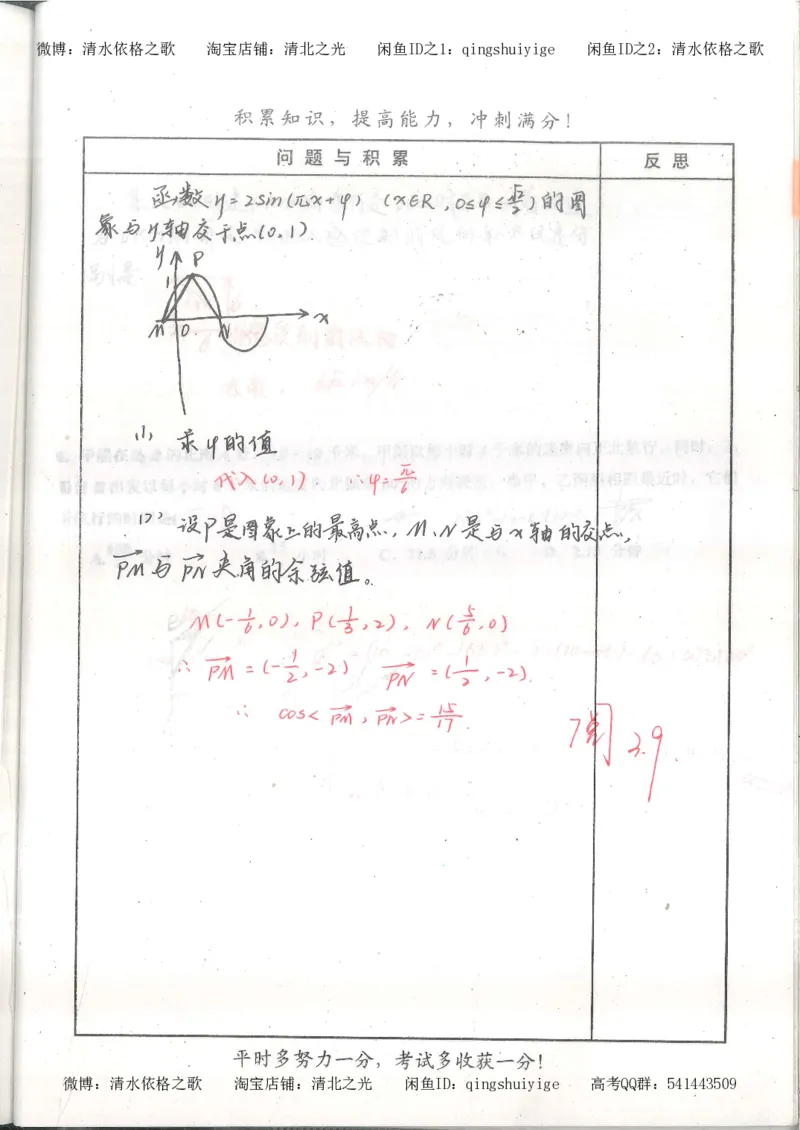 微博：清水依格之歌 淘宝店铺：清北之光 闲鱼ID之1：qingshuiyige 闲鱼ID之2：清水依格之歌
积累知识，提高能力，冲刺满分！
问题与积累 反思
函数 y=2sin(πx+φ) (x∈R, 0≤φ≤π/2)的图
象与y轴交于点(0,1).
y P
1
M O N x
(1) 求φ的值
代入(0,1) ∴φ=π/6
(2) 设P是图象上的最高点, M、N是与x轴的交点,
PM与PN夹角的余弦值。
M(-1/6,0), P(1/3,2), N(5/6,0)
∴ PM=(-1/2,-2) PN=(1/2,-2).
∴ cos<PM,PN>=15/17.
3.9
平时多努力一分，考试多收获一分！
微博：清水依格之歌 淘宝店铺：清北之光 闲鱼ID：qingshuiyige 高考QQ群：541443509